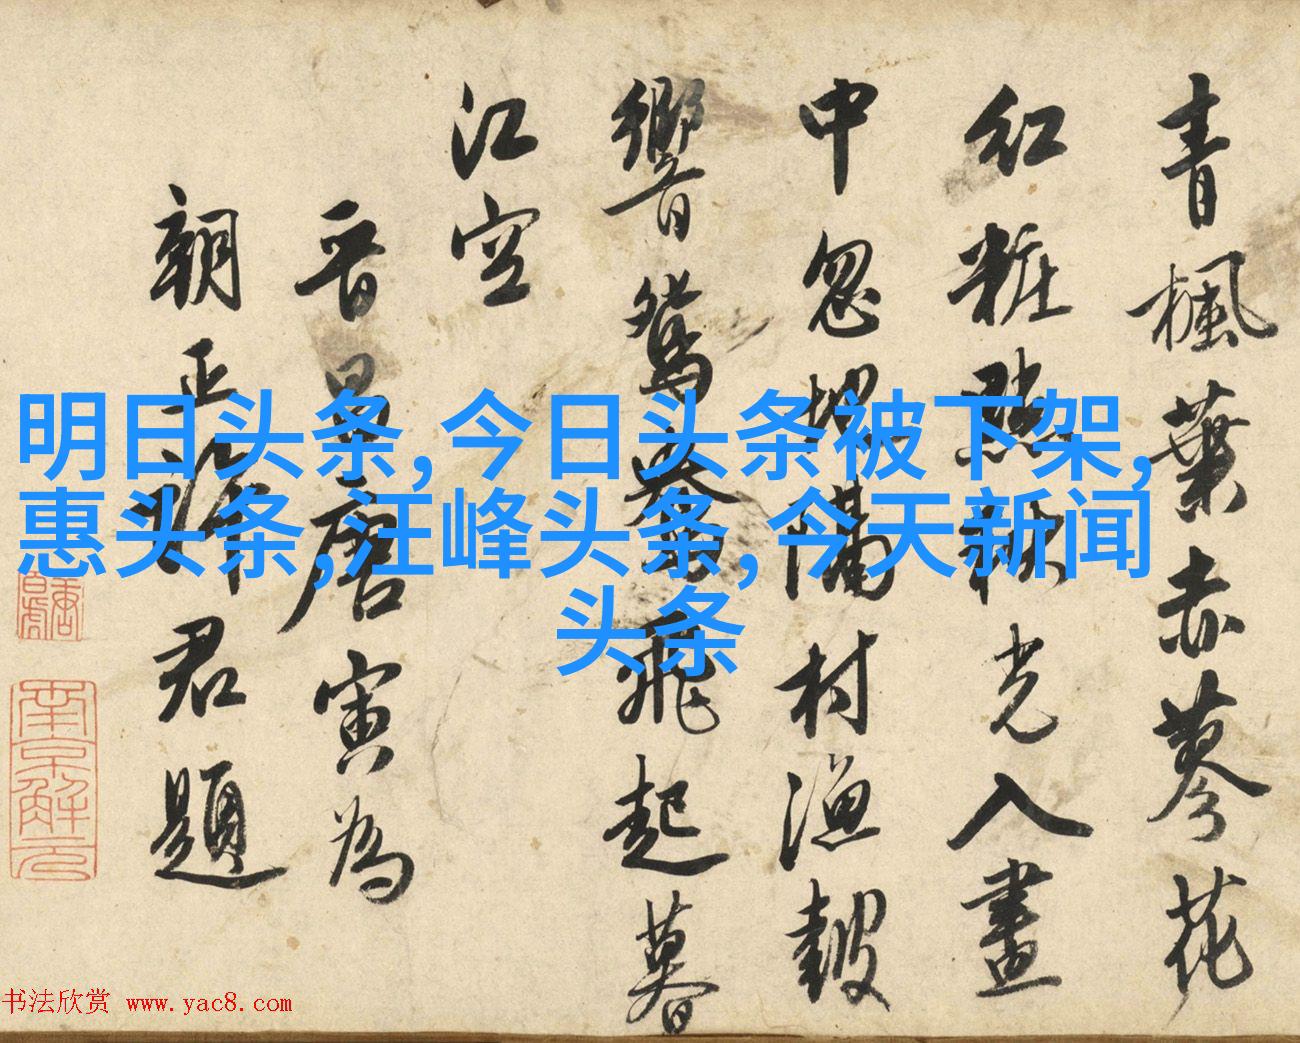 青楓葉赤蓼花
紅粧點秋光入畫
中忽隔村漁鼓
響鴛鴦飛起暮
江空
晉昌唐寅為
朝正君題
明日头条,今日头条被下架,
惠头条,汪峰头条,今天新闻
头条
南京解元
书法欣赏 www.yac8.com